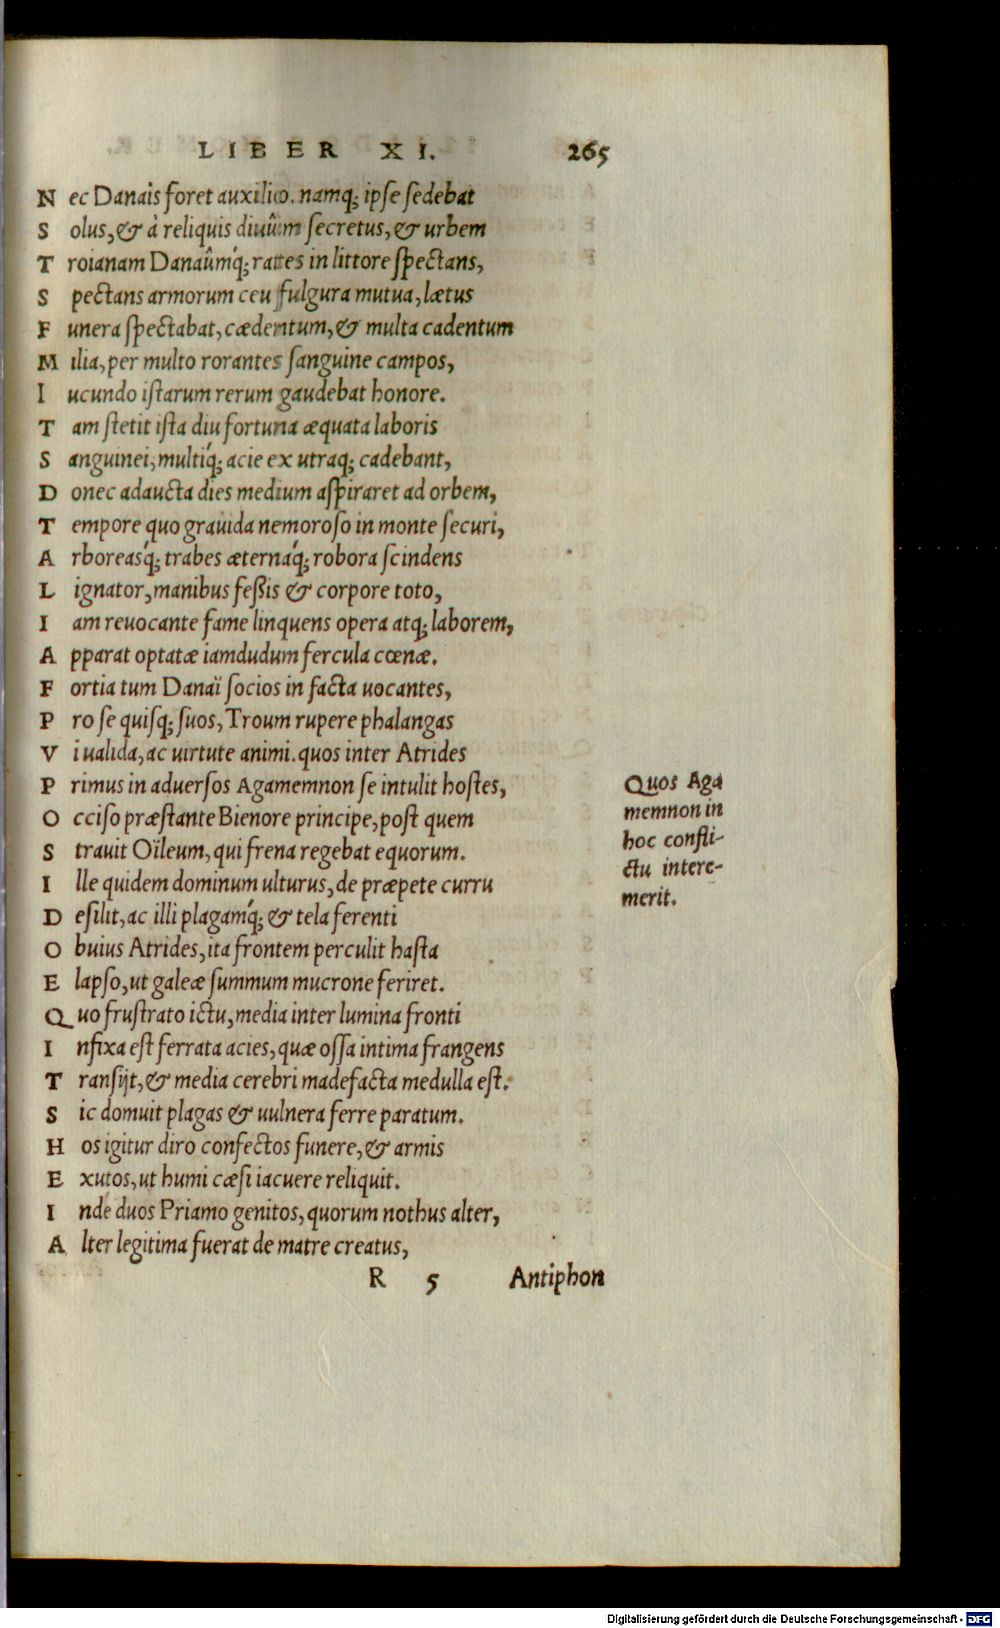 LIBER XI. 265
Nec Danais foret auxilio. namq; ipse sedebat
Solus, & à reliquis diuûm secretus, & urbem
Troianam Danaûmq́; rates in littore spectans,
Spectans armorum ceu fulgura mutua, lætus
Funera spectabat, cædentum, & multa cadentum
Milia, per multo rorantes sanguine campos,
Iucundo istarum rerum gaudebat honore.
Tam stetit ista diu fortuna æquata laboris
Sanguinei, multiq́; acie ex utraq; cadebant,
Donec adaucta dies medium aspiraret ad orbem,
Tempore quo grauida nemoroso in monte securi,
Arboreasq́; trabes æternaq́; robora scindens
Lignator, manibus fessis & corpore toto,
Iam reuocante fame linquens opera atq; laborem,
Apparat optatæ iamdudum fercula cœnæ.
Fortia tum Danaï socios in facta uocantes,
Pro se quisq; suos, Troum rupere phalangas
Vi ualida, ac uirtute animi. quos inter Atrides
Primus in aduersos Agamemnon se intulit hostes,
Occiso præstante Bienore principe, post quem
Strauit Oïleum, qui frena regebat equorum.
Ille quidem dominum ulturus, de præpete curru
Desilit, ac illi plagamq́; & tela ferenti
Obuius Atrides, ita frontem perculit hasta
Elapso, ut galeæ summum mucrone feriret.
Quo frustrato ictu, media inter lumina fronti
Infixa est ferrata acies, quæ ossa intima frangens
Transijt, & media cerebri madefacta medulla est.
Sic domuit plagas & uulnera ferre paratum.
Hos igitur diro confectos funere, & armis
Exutos, ut humi cæsi iacuere reliquit.
Inde duos Priamo genitos, quorum nothus alter,
Alter legitima fuerat de matre creatus,
R 5 Antiphon
Quos Aga
memnon in
hoc confli-
ctu intere-
merit.
Digitalisierung gefördert durch die Deutsche Forschungsgemeinschaft - DFG